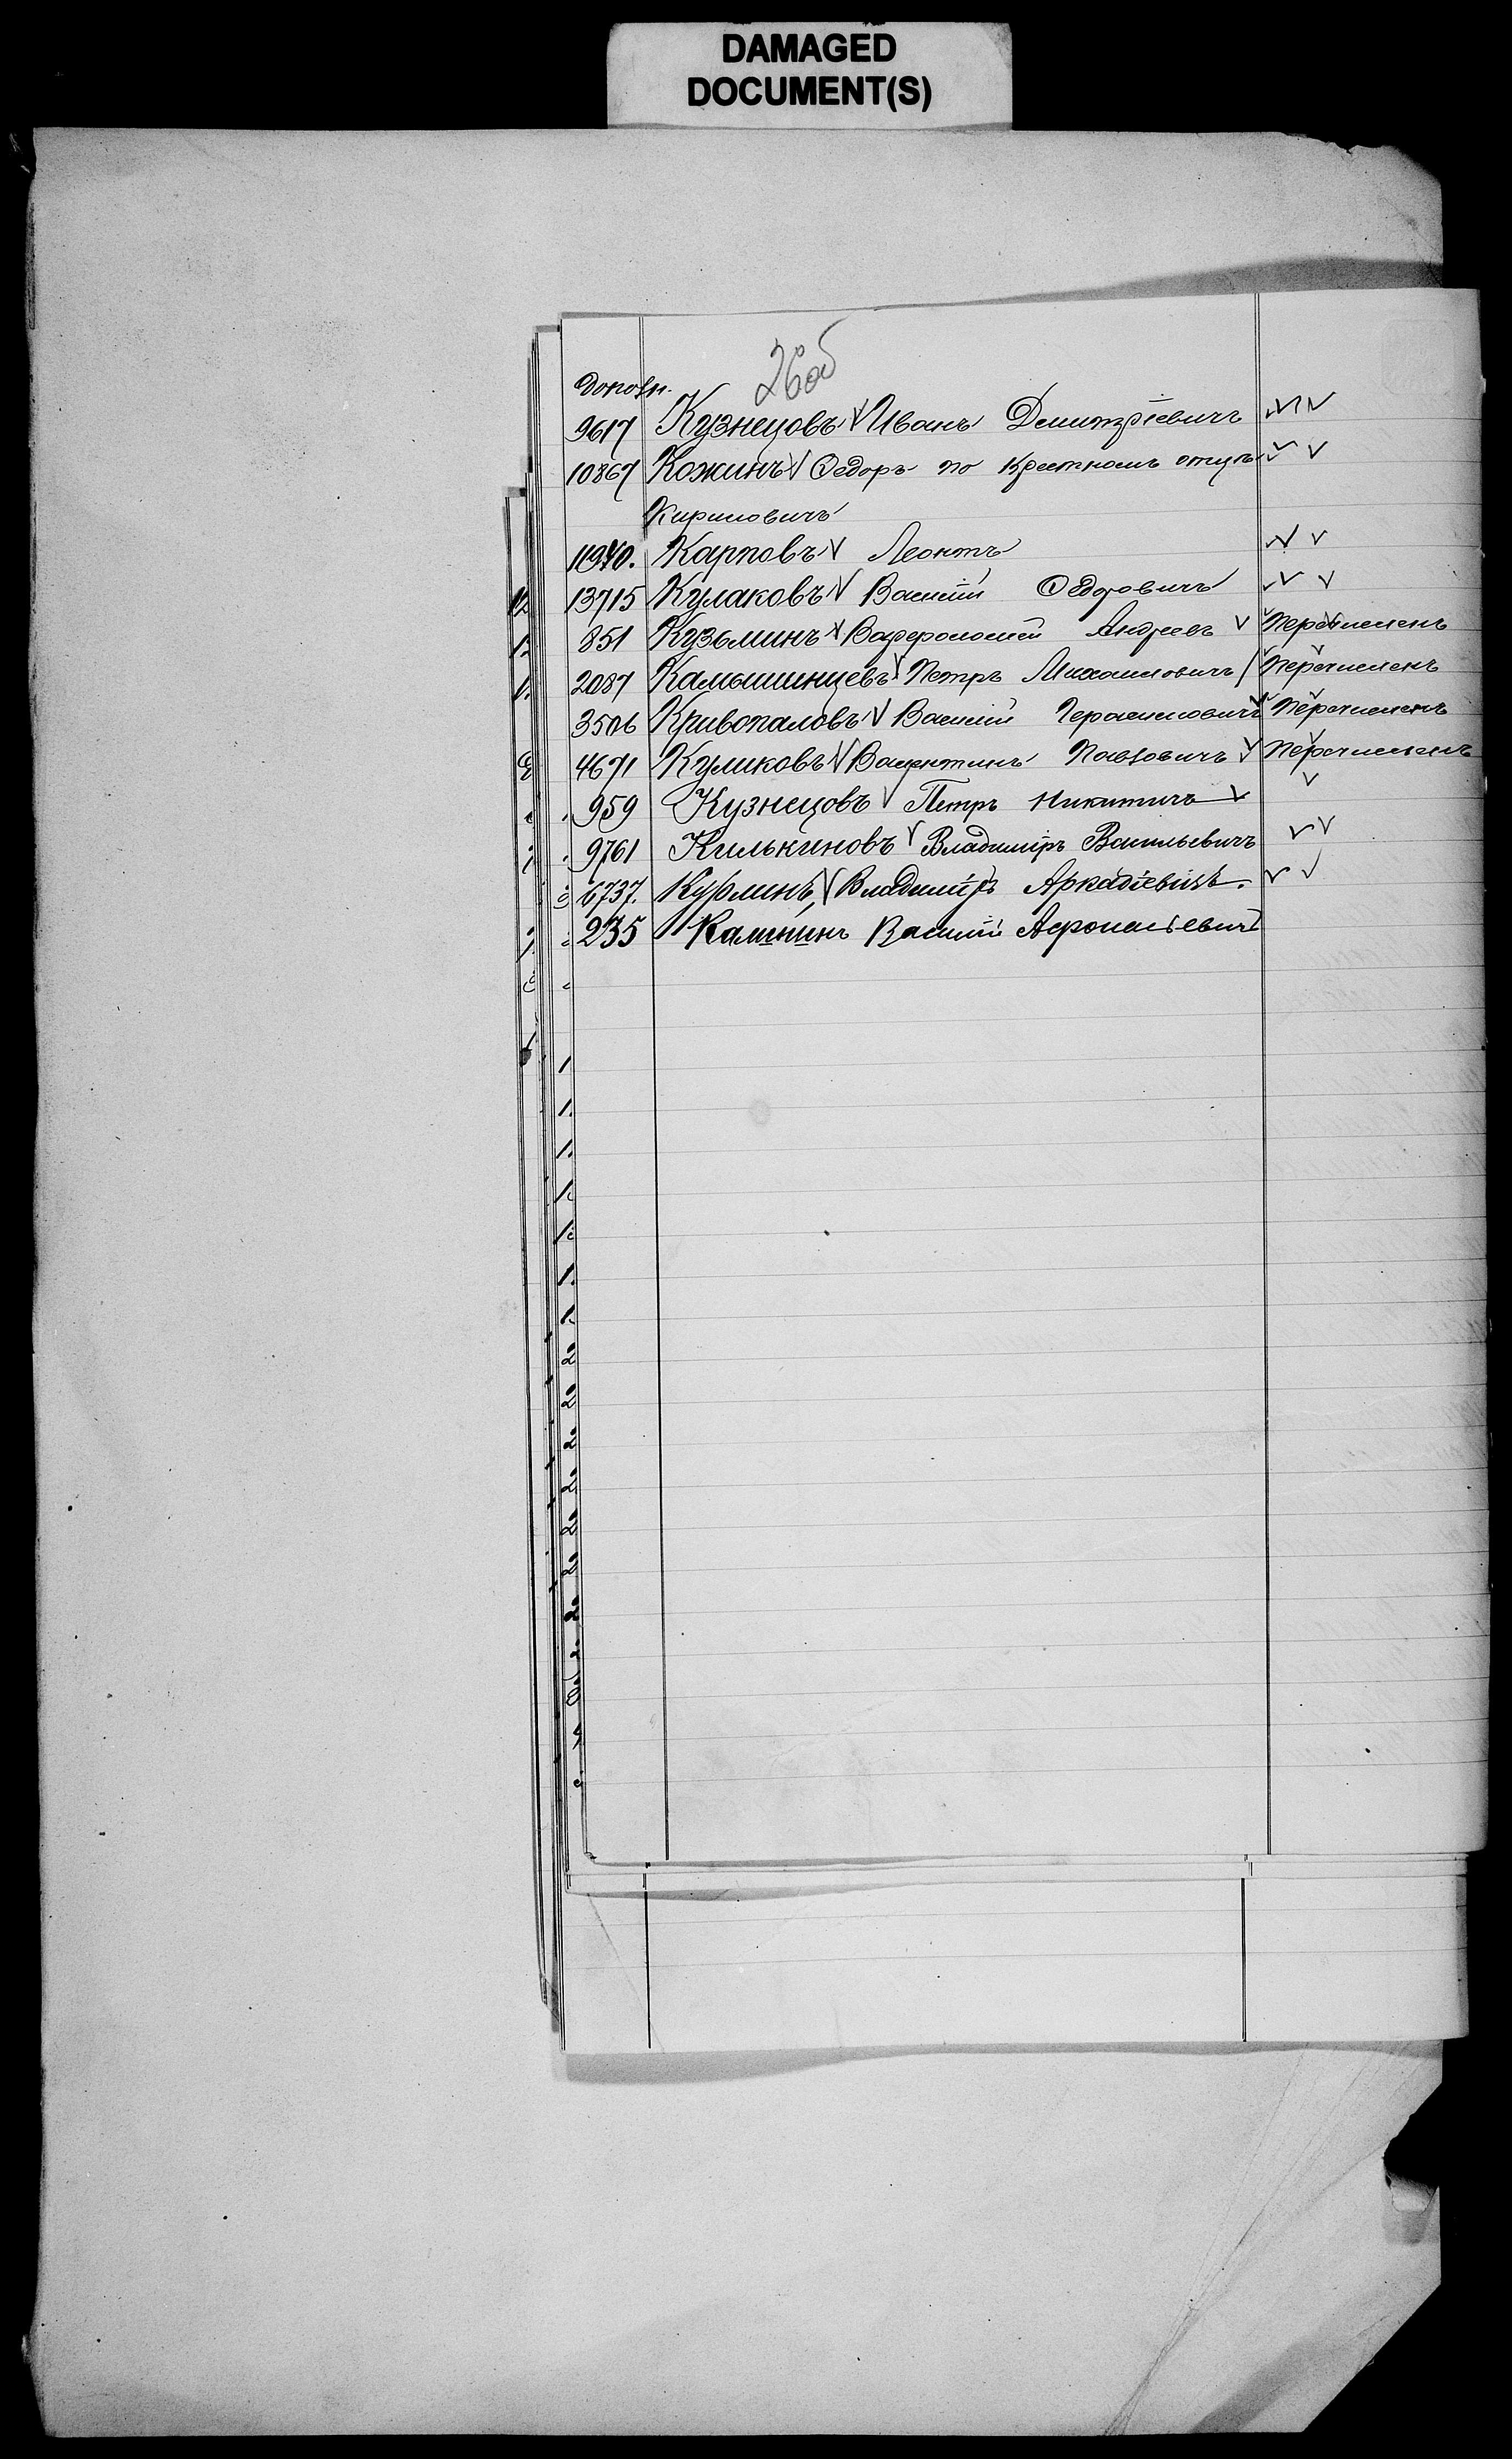 DAMAGED
DOCUMENT(S)
26об
Дополн.
9617 Кузнецовъ Иванъ Димитріевичъ
10867 Кожинъ Ѳедоръ по крестномъ отцѣ
Кириловичъ
Карповъ Леонтъ
13715 Кулаковъ Василій Ѳедоровичъ
851 Кузьминъ Варфоломей Андреевъ Перечисленъ
2087 Камышинцевъ Петръ Михаиловичъ Перечисленъ
3506 Кривопаловъ Василій Герасимовичъ Перечисленъ
4671 Куликовъ Валентинъ Павловичъ Перечисленъ
959 Кузнецовъ Петръ Никитичъ
9761 Килькиновъ Владиміръ Васильевичъ
6737. Курлинъ, Владиміръ Аркадіевичъ.
235 Калининъ Василій Афонасіевичъ